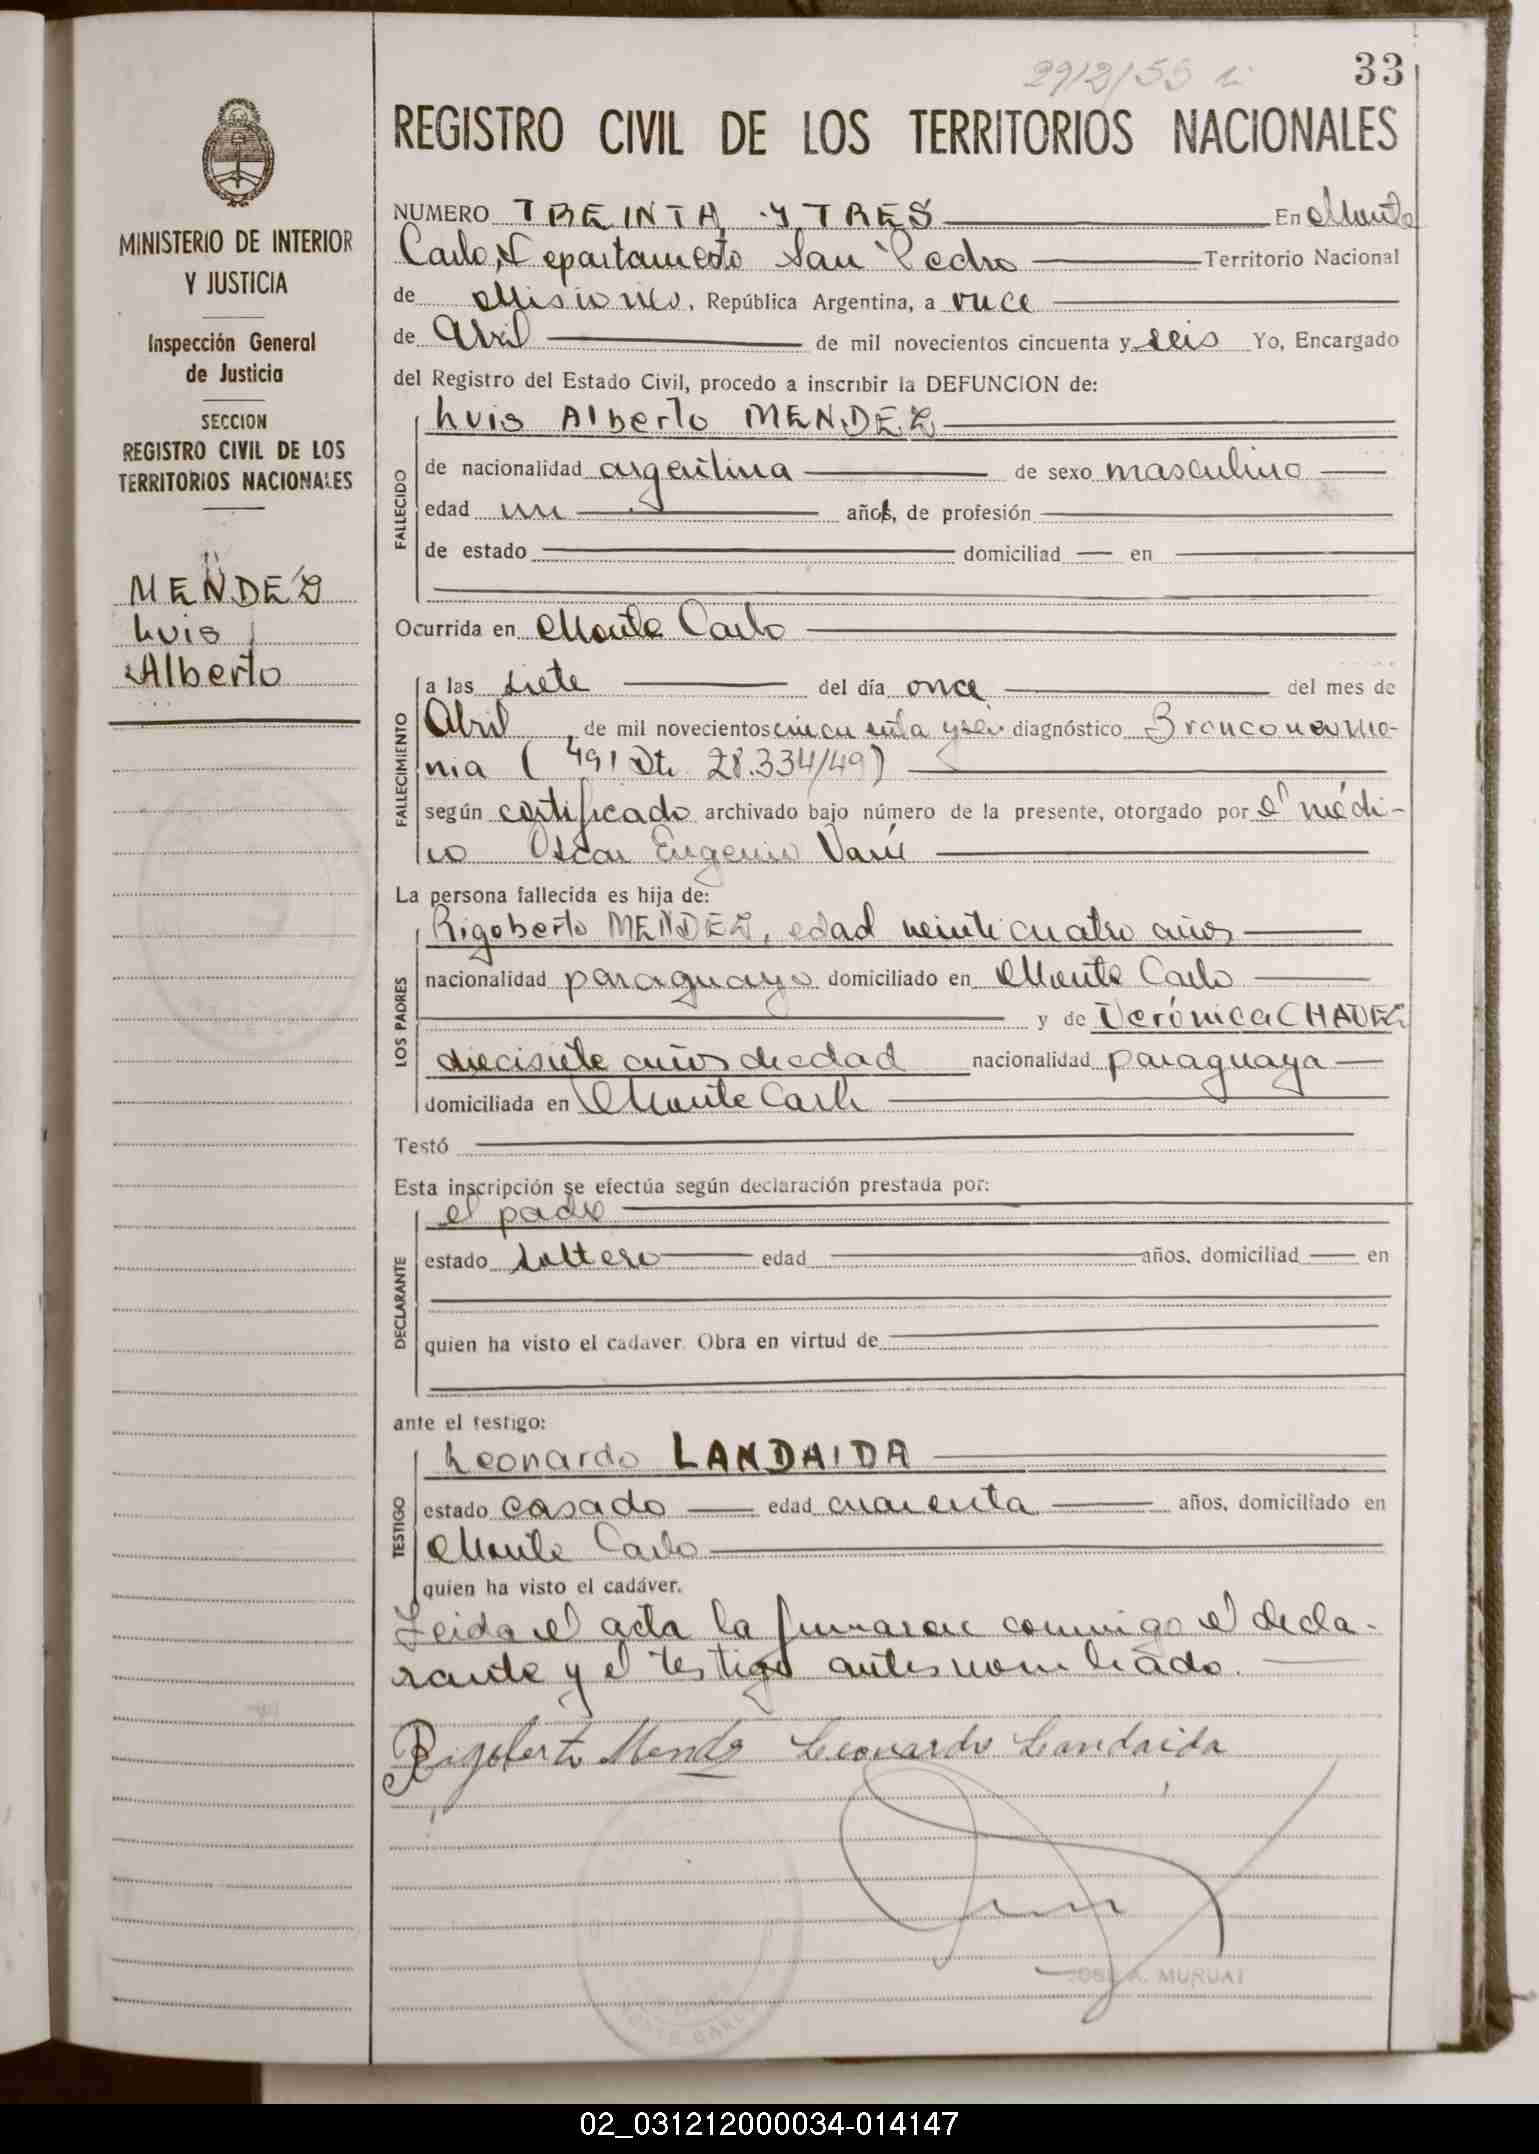 29/2/55
33
REGISTRO CIVIL DE LOS TERRITORIOS NACIONALES
MINISTERIO DE INTERIOR
Y JUSTICIA
Inspección General
de Justicia
SECCION
REGISTRO CIVIL DE LOS
TERRITORIOS NACIONALES
MENDEZ
Luis
Alberto
NUMERO TREINTA Y TRES En Monte
Carlo, Departamento San Pedro Territorio Nacional
de Misiones, República Argentina, a once
de Abril de mil novecientos cincuenta y seis Yo, Encargado
del Registro del Estado Civil, procedo a inscribir la DEFUNCION de:
Luis Alberto MENDEZ
FALLECIDO
de nacionalidad argentina de sexo masculino
edad un años, de profesión
de estado domiciliad en
Ocurrida en Monte Carlo
FALLECIMIENTO
a las siete del día once del mes de
Abril de mil novecientos cincuenta y seis diagnóstico Bronconeumo-
nia ( 491 Dto 28.334/49)
según certificado archivado bajo número de la presente, otorgado por el médi-
co Oscar Eugenio
La persona fallecida es hija de:
LOS PADRES
Rigoberto MENDEZ, edad veinticuatro años
nacionalidad paraguayo domiciliado en Monte Carlo
y de Verónica CHAVEZ
diecisiete años de edad nacionalidad paraguaya
domiciliada en Monte Carlo
Testó
Esta inscripción se efectúa según declaración prestada por:
DECLARANTE
el padre
estado soltero edad años, domiciliad en
quien ha visto el cadaver. Obra en virtud de
ante el testigo:
TESTIGO
Leonardo LANDAIDA
estado casado edad cuarenta años, domiciliado en
Monte Carlo
quien ha visto el cadáver.
Leida el acta la firmaron conmigo el decla-
rante y el testigo antes nombrado.
Rigoberto Mendez Leonardo Landaida
JOSE A. MURUAT
MONTE CARLO
02_031212000034-014147